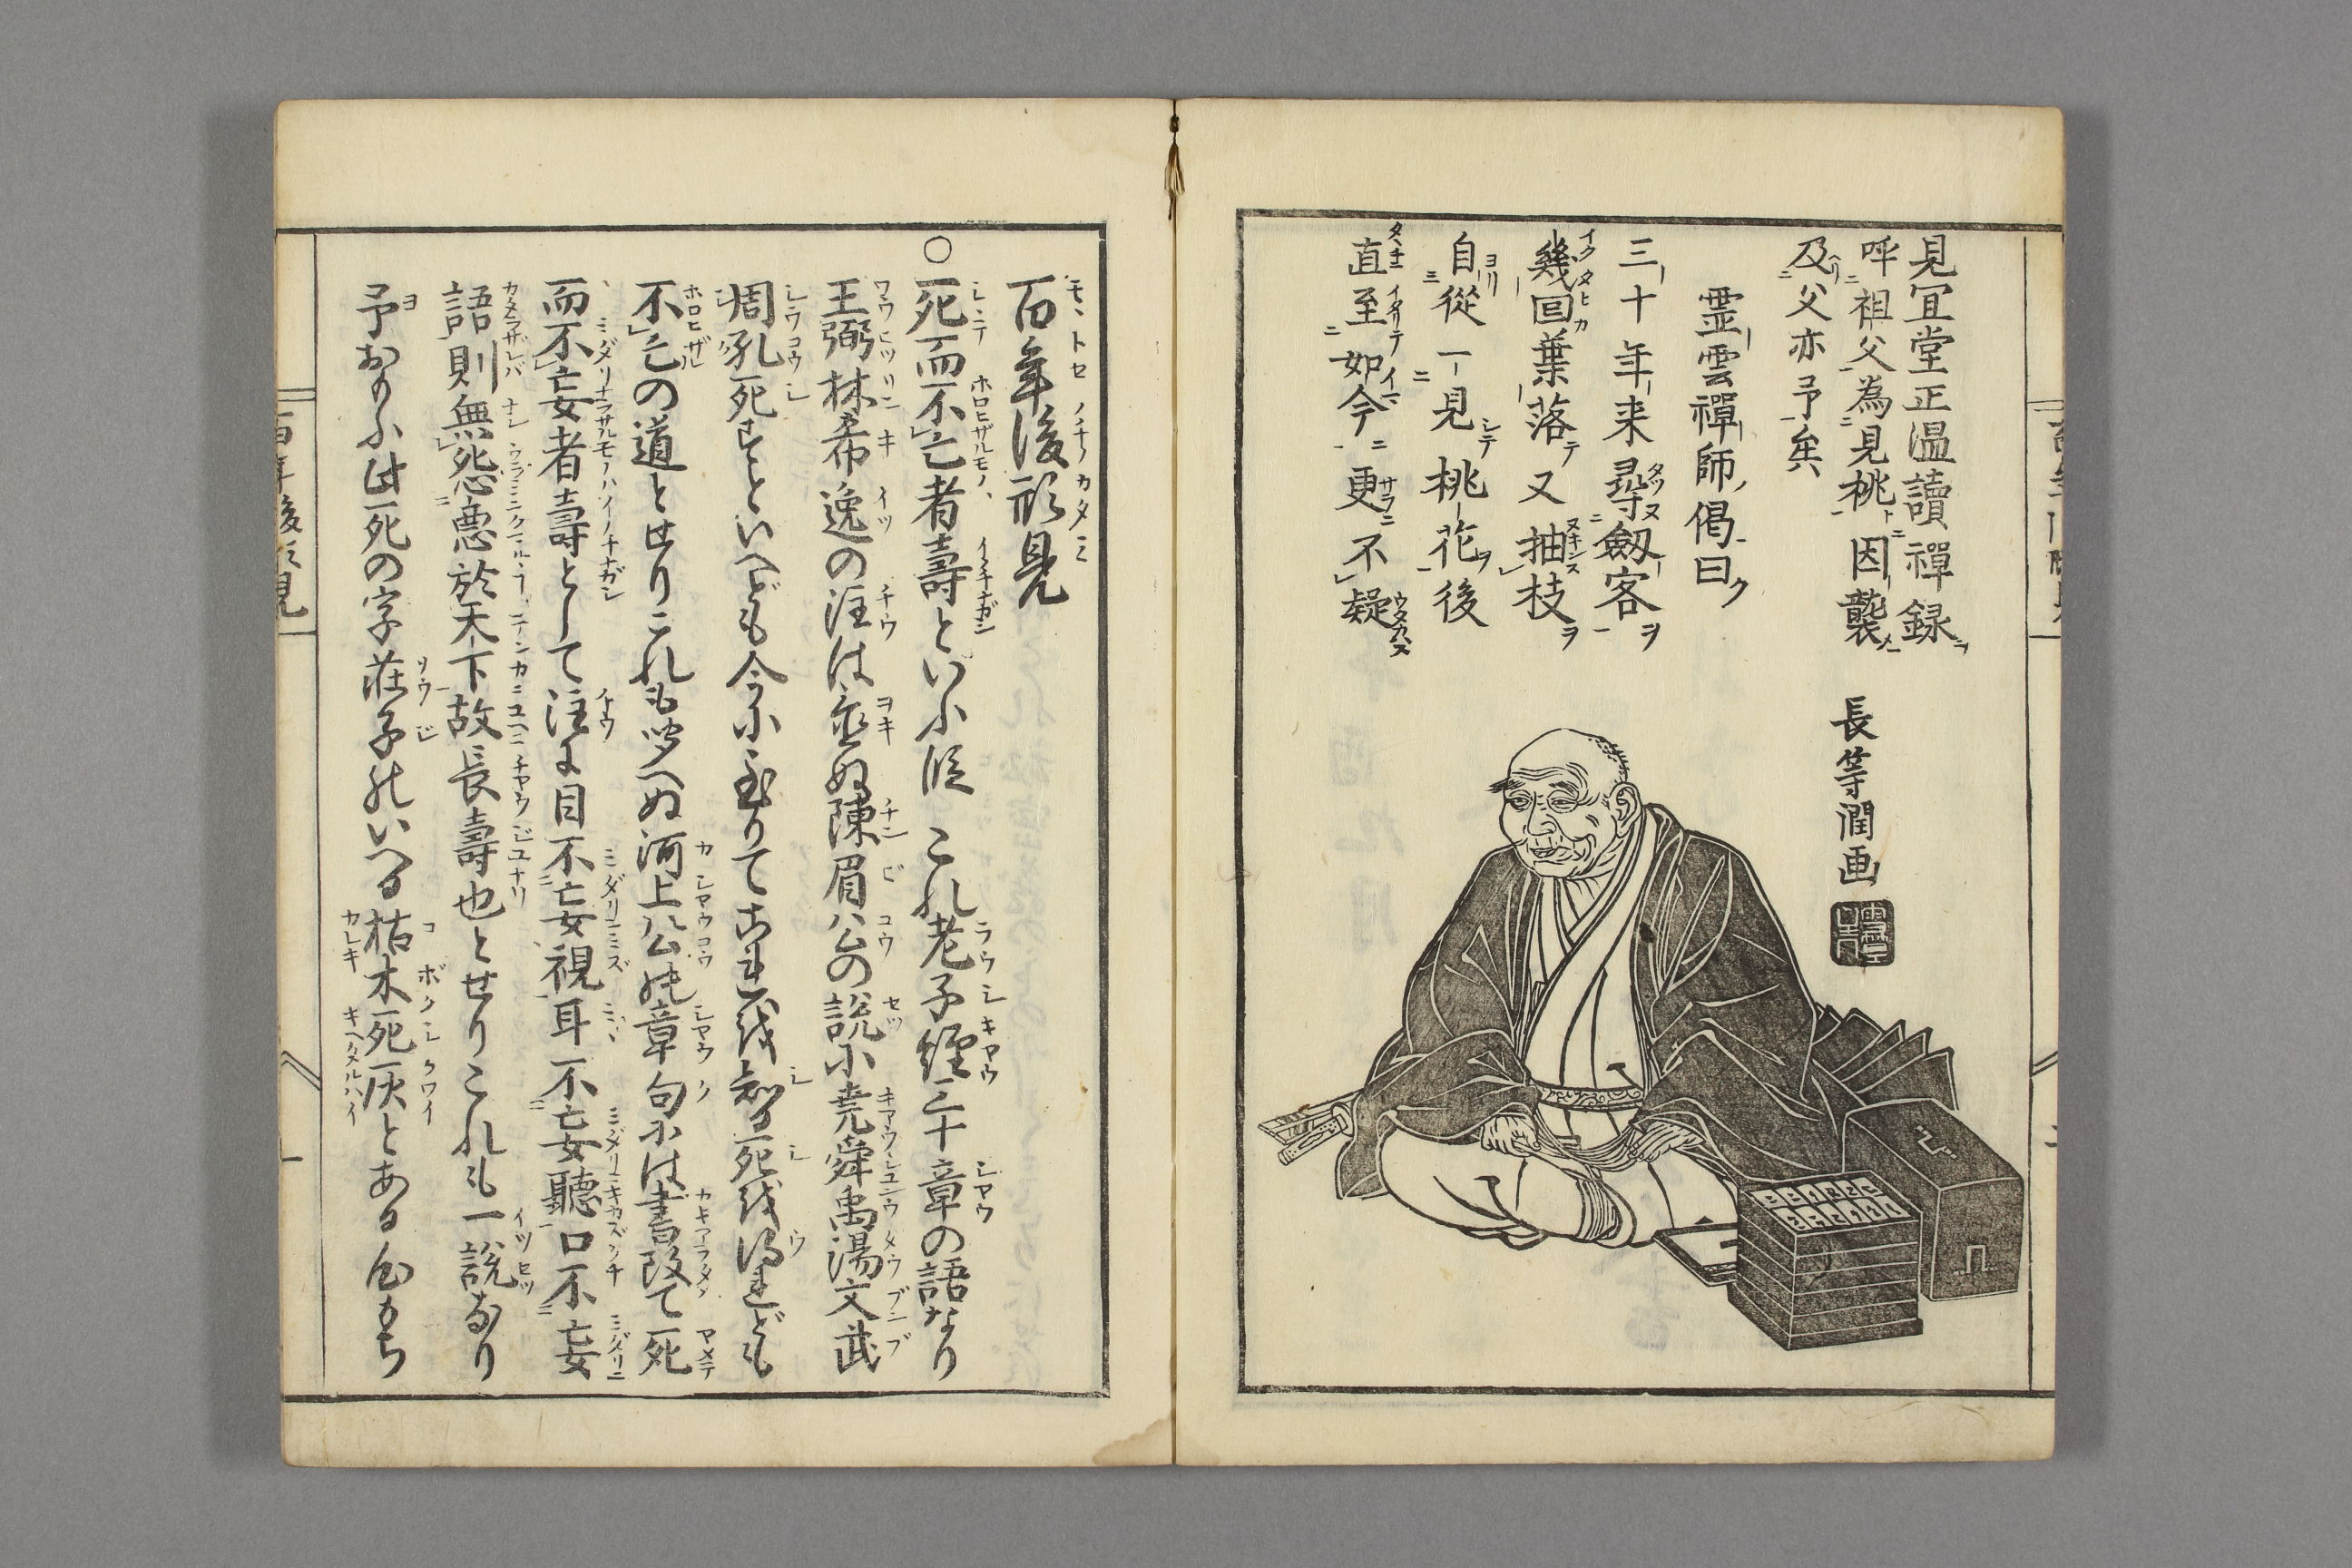 見宜堂正温讀禪録
呼祖父為見桃因襲
及父亦予矣
霊雲禪師偈曰
三十年来尋劔客
幾回葉落又抽枝
自從一見桃花後
直至如今更不疑
長等潤画
百年後形見
○死而不亡者壽といふ段 これ老子経三十章の語なり
王弼林希逸の注は並ぬ陳眉公の説小堯舜禹湯文武
周孔死すといへども今小到りて古越知る死越得れども
不亡の道とせりこれも皆へぬ河上公の章句には書改て死
而不妄者壽として注に目不妄視耳不妄聽口不妄
語則無怨悪於天下故長壽也とせりこれも一説なり
予おもふ此死の字荘子のいへる枯木死灰とある
百年後形見